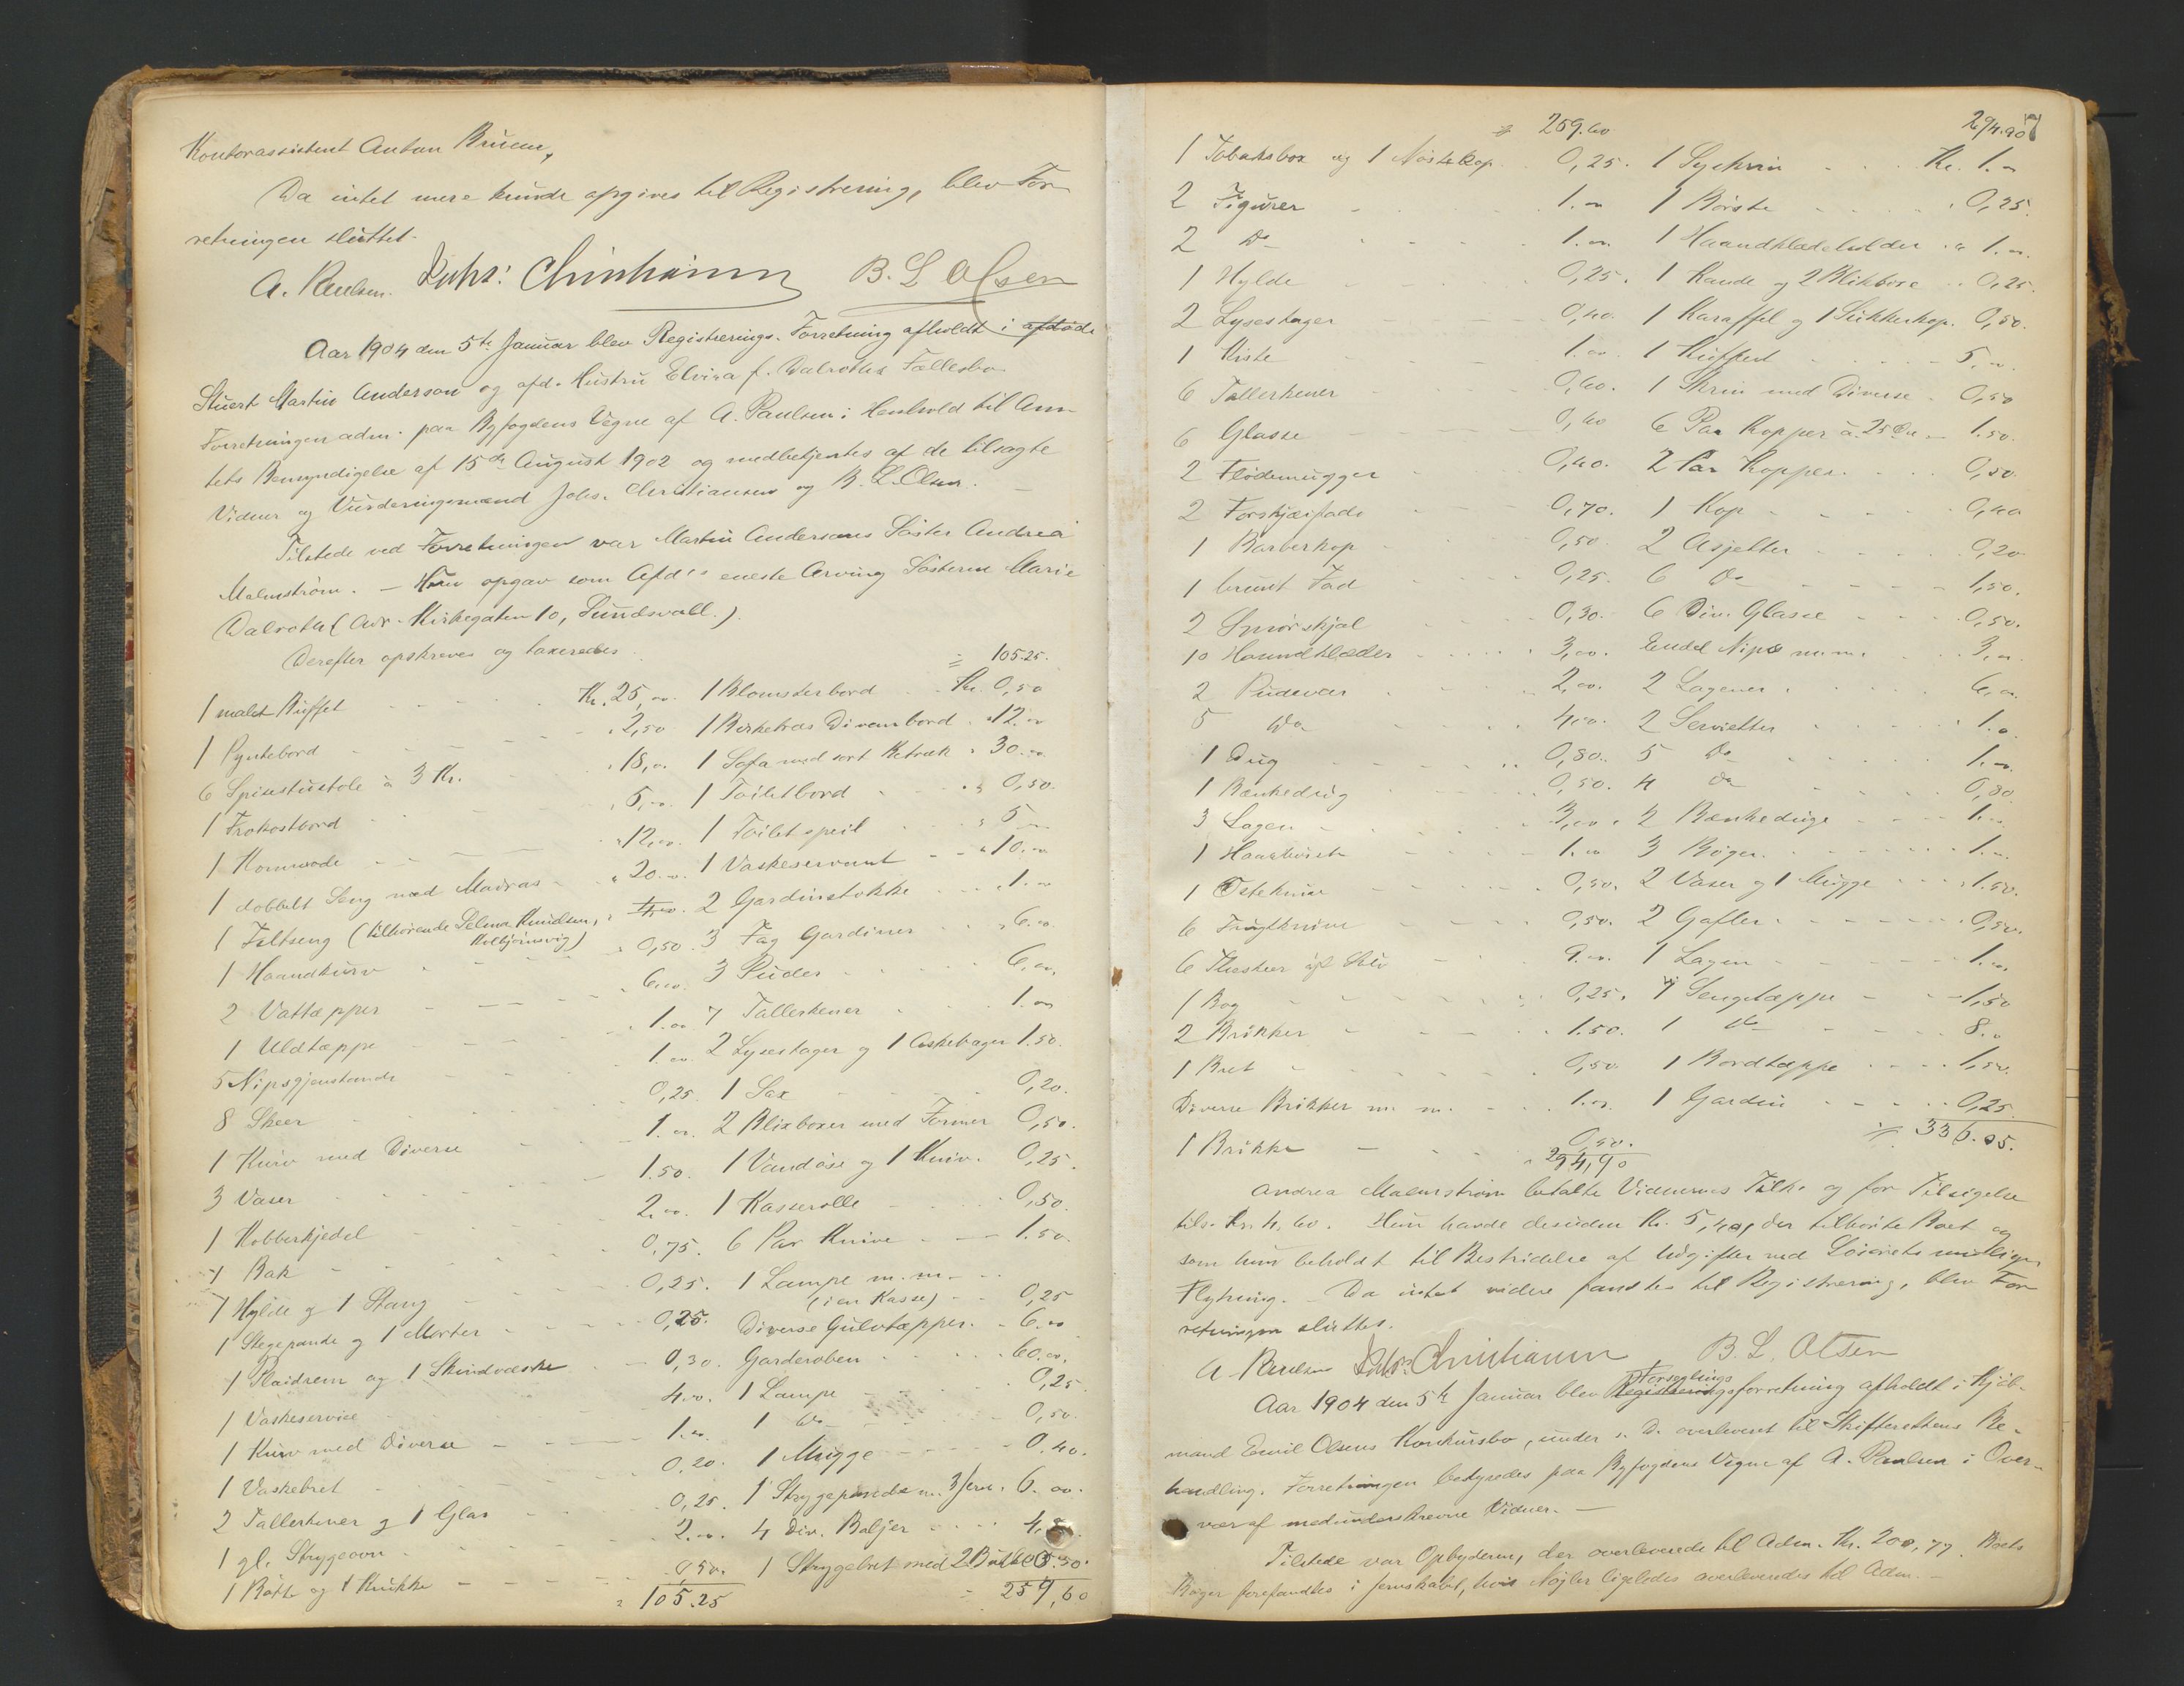 Kontorassistent Anton Bruun,
Da intet mere kunde opgives til Registrering, blev For-
retningen sluttet.
A. Paulsen. Johs: Christiansen B. L. Olsen
Aar 1904 den 5te Januar blev Registrerings-Forretning afholdt i afdøde
Stuert Martin Anderson og afd. Hustru Elvira f. Dalroths Fællesbo.
Forretningen adm. paa Byfogdens Vegne af A. Paulsen i Henhold til Am-
tets Bemyndigelse af 15de August 1902 og medbetjentes af de tilsagte
Vidner og Vurderingsmænd Johs. Christiansen og B. L. Olsen. —
Tilstede ved Forretningen var Martin Andersons Søster Andrea
Malmström. — Hun opgav som Afd's eneste Arving Søsteren Marie
Dalroth (Adr. Kirkegaten 10, Sundsvall.)
Derefter opskreves og taxeredes
1 malet Buffet Kr. 25,00
1 Pyntebord 2,50
6 Spisestuestole à 3 Kr. 18,00
1 Frokostbord 5,00
1 Kommode 12,00
1 dobbelt Seng med Madras 20.00
1 Feltseng (tilhørende Selma Knudsen, Kolbjørnsvig)
1 Haandkurv 0,50
2 Vattæpper 6.00
1 Uldtæppe 1.00
5 Nipsgjenstande 1.00
8 Skeer 0,25
1 Kurv med Diverse 1.00
3 Vaser 1.50
1 Kobberkjedel 2.00
1 Bak 0,75
1 Hylde og 1 Stang 0,25
1 Stegepande og 1 Morter 0,25
1 Plaidrem og 1 Skindvæske 0,30
1 Vaskeservice 4.00
1 Kurv med Diverse 1.00
1 Vaskebret 0,20
2 Tallerkener og 1 Glas 0,25
1 gl. Strygeovn 2.00
1 Bøtte og 1 Krukke 0,50
105.25
105.25
1 Blomsterbord Kr. 0,50
1 Birketræs Divanbord 12.00
1 Sofa med sort Betræk 30.00
1 Toiletbord 0,50
1 Toiletspeil 5
1 Vaskeservant 10.00
2 Gardinstokke 1.00
3 Fag Gardiner 6.00
3 Puder 6,00
7 Tallerkener 1.00
2 Lysestager og 1 Askebæger 1.50
1 Sax 0,20
2 Blixboxer med Former 0,50
1 Vandøse og 1 Kniv 0,25
1 Kasserolle 0,50
6 Par Knive 1.50
1 Lampe m.m.
(i en Kasse) 0,25
Diverse Gulvtæpper 6.00
Garderoben 60.00
1 Lampe 0,25
1 Do 0,50
1 Mugge 0.40
1 Strygepande m. 3 Jern 6.00
4 Div. Baljer
1 Strygebret med 2 Bukke
259,60
259.60
1 Tobaksbox og 1 Kop 0,25
2 Figurer 1.00
2 Do 1.00
1 Hylde 0,25
2 Lysestager 0,40
1 Kiste 1.00
6 Tallerkener 0,60
6 Glasse 0,60
2 Flødemugger 0,40
2 Forskjærfade 0,70
1 Barberkop 0,50
1 brunt Fad 0,25
2 Smørskjæl 0,30
10 Haandklæder 3,00
2 Pudevar 2,00
5 Do 4,00
1 Dug 0,80
1 Bænkedug 0,50
3 Lagen 3,00
1 Haarbørste 1.00
1 Ostekniv 0,50
6 Frugtknive 0,50
6 Theskeer af Sølv 9.00
1 Bog 0,25
2 Brikker 1.50
1 Bret 0,50
Diverse Brikker m. m. 1.00
1 Brikke 0,50
294,90
294.90
7
1 Syskrin Kr. 1.00
1 Børste 0,25
1 Haandklædeholder 1.00
1 Kande og 2 Blikboxe 0,25
1 Karaffel og 1 Sukkerkop 0,50
1 Kuffert 5,00
1 Skrin med Diverse 0,50
6 Par Kopper à 25 Øre 1.50
2 Par Kopper 0,50
1 Kop 0,40
2 Asjetter 0,20
6 Do 1,50
6 Div. Glasse 0,50
Endel Nips m.m. 3,00
2 Lagener 6,00
2 Servietter 1.00
5 Do 1.00
4 Do 0,80
2 Bænkeduge 1.00
3 Bøger 1.00
2 Vaser og 1 Mugge 1.50
2 Gafler 0,50
1 Lagen 1.00
1 Sengetæppe 1,50
1 Do 8.00
1 Bordtæppe 1,50
1 Gardin 0,25
336.05
Andrea Malmström betalte Vidnernes Tilk. og for Tilsigelse
tils. Kr. 4.60. Hun havde desuden Kr. 5,40, der tilhørte Boet og
som hun beholdt til Bestridelse af Udgifter ved Løsørets
Flytning. — Da intet videre fandtes til Registrering, blev For-
retningen sluttet.
A. Paulsen Johs: Christiansen B. L. Olsen
Aar 1904 den 5te Januar blev Registrerings Forseglingsforretning afholdt i Kjøb-
mand Emil Olsens Konkursbo, under s. D. overleveret til Skifterettens Be-
handling. Forretningen bestyredes paa Byfogdens Vegne af A. Paulsen i Over-
vær af medunderskrevne Vidner. —
Tilstede var Opbyderen, der overleverede til Adm. Kr. 200,77. Boets
Bøger forefandtes i Jernskabet, hvis Nøgler ligeledes overleveredes til Adm. —